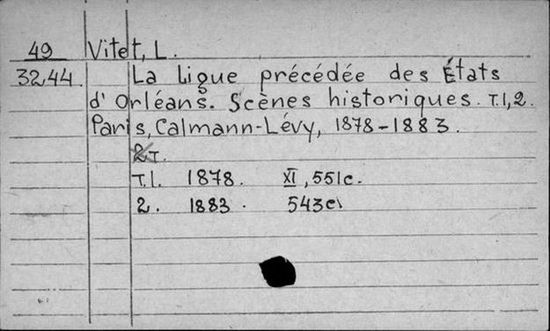 49 Vitet, L.
32,44. La Ligue précédée des États
d'Orléans. Scènes historiques. T.1,2.
Paris, Calmann-Lévy, 1878-1883.
2 т.
T.1. 1878. XI, 551 с.
2. 1883. 543 с.